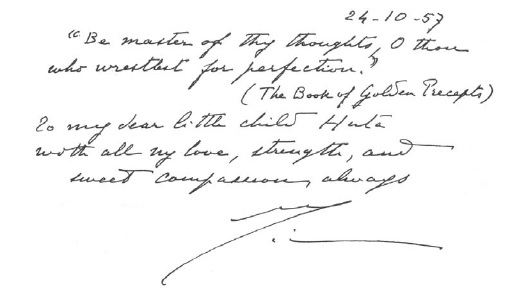 24-10-57
"Be master of thy thoughts, O thou
who wrestlest for perfection."
(The Book of Golden Precepts)
To my dear little child Huta
with all my love, strength, and
sweet compassion, always